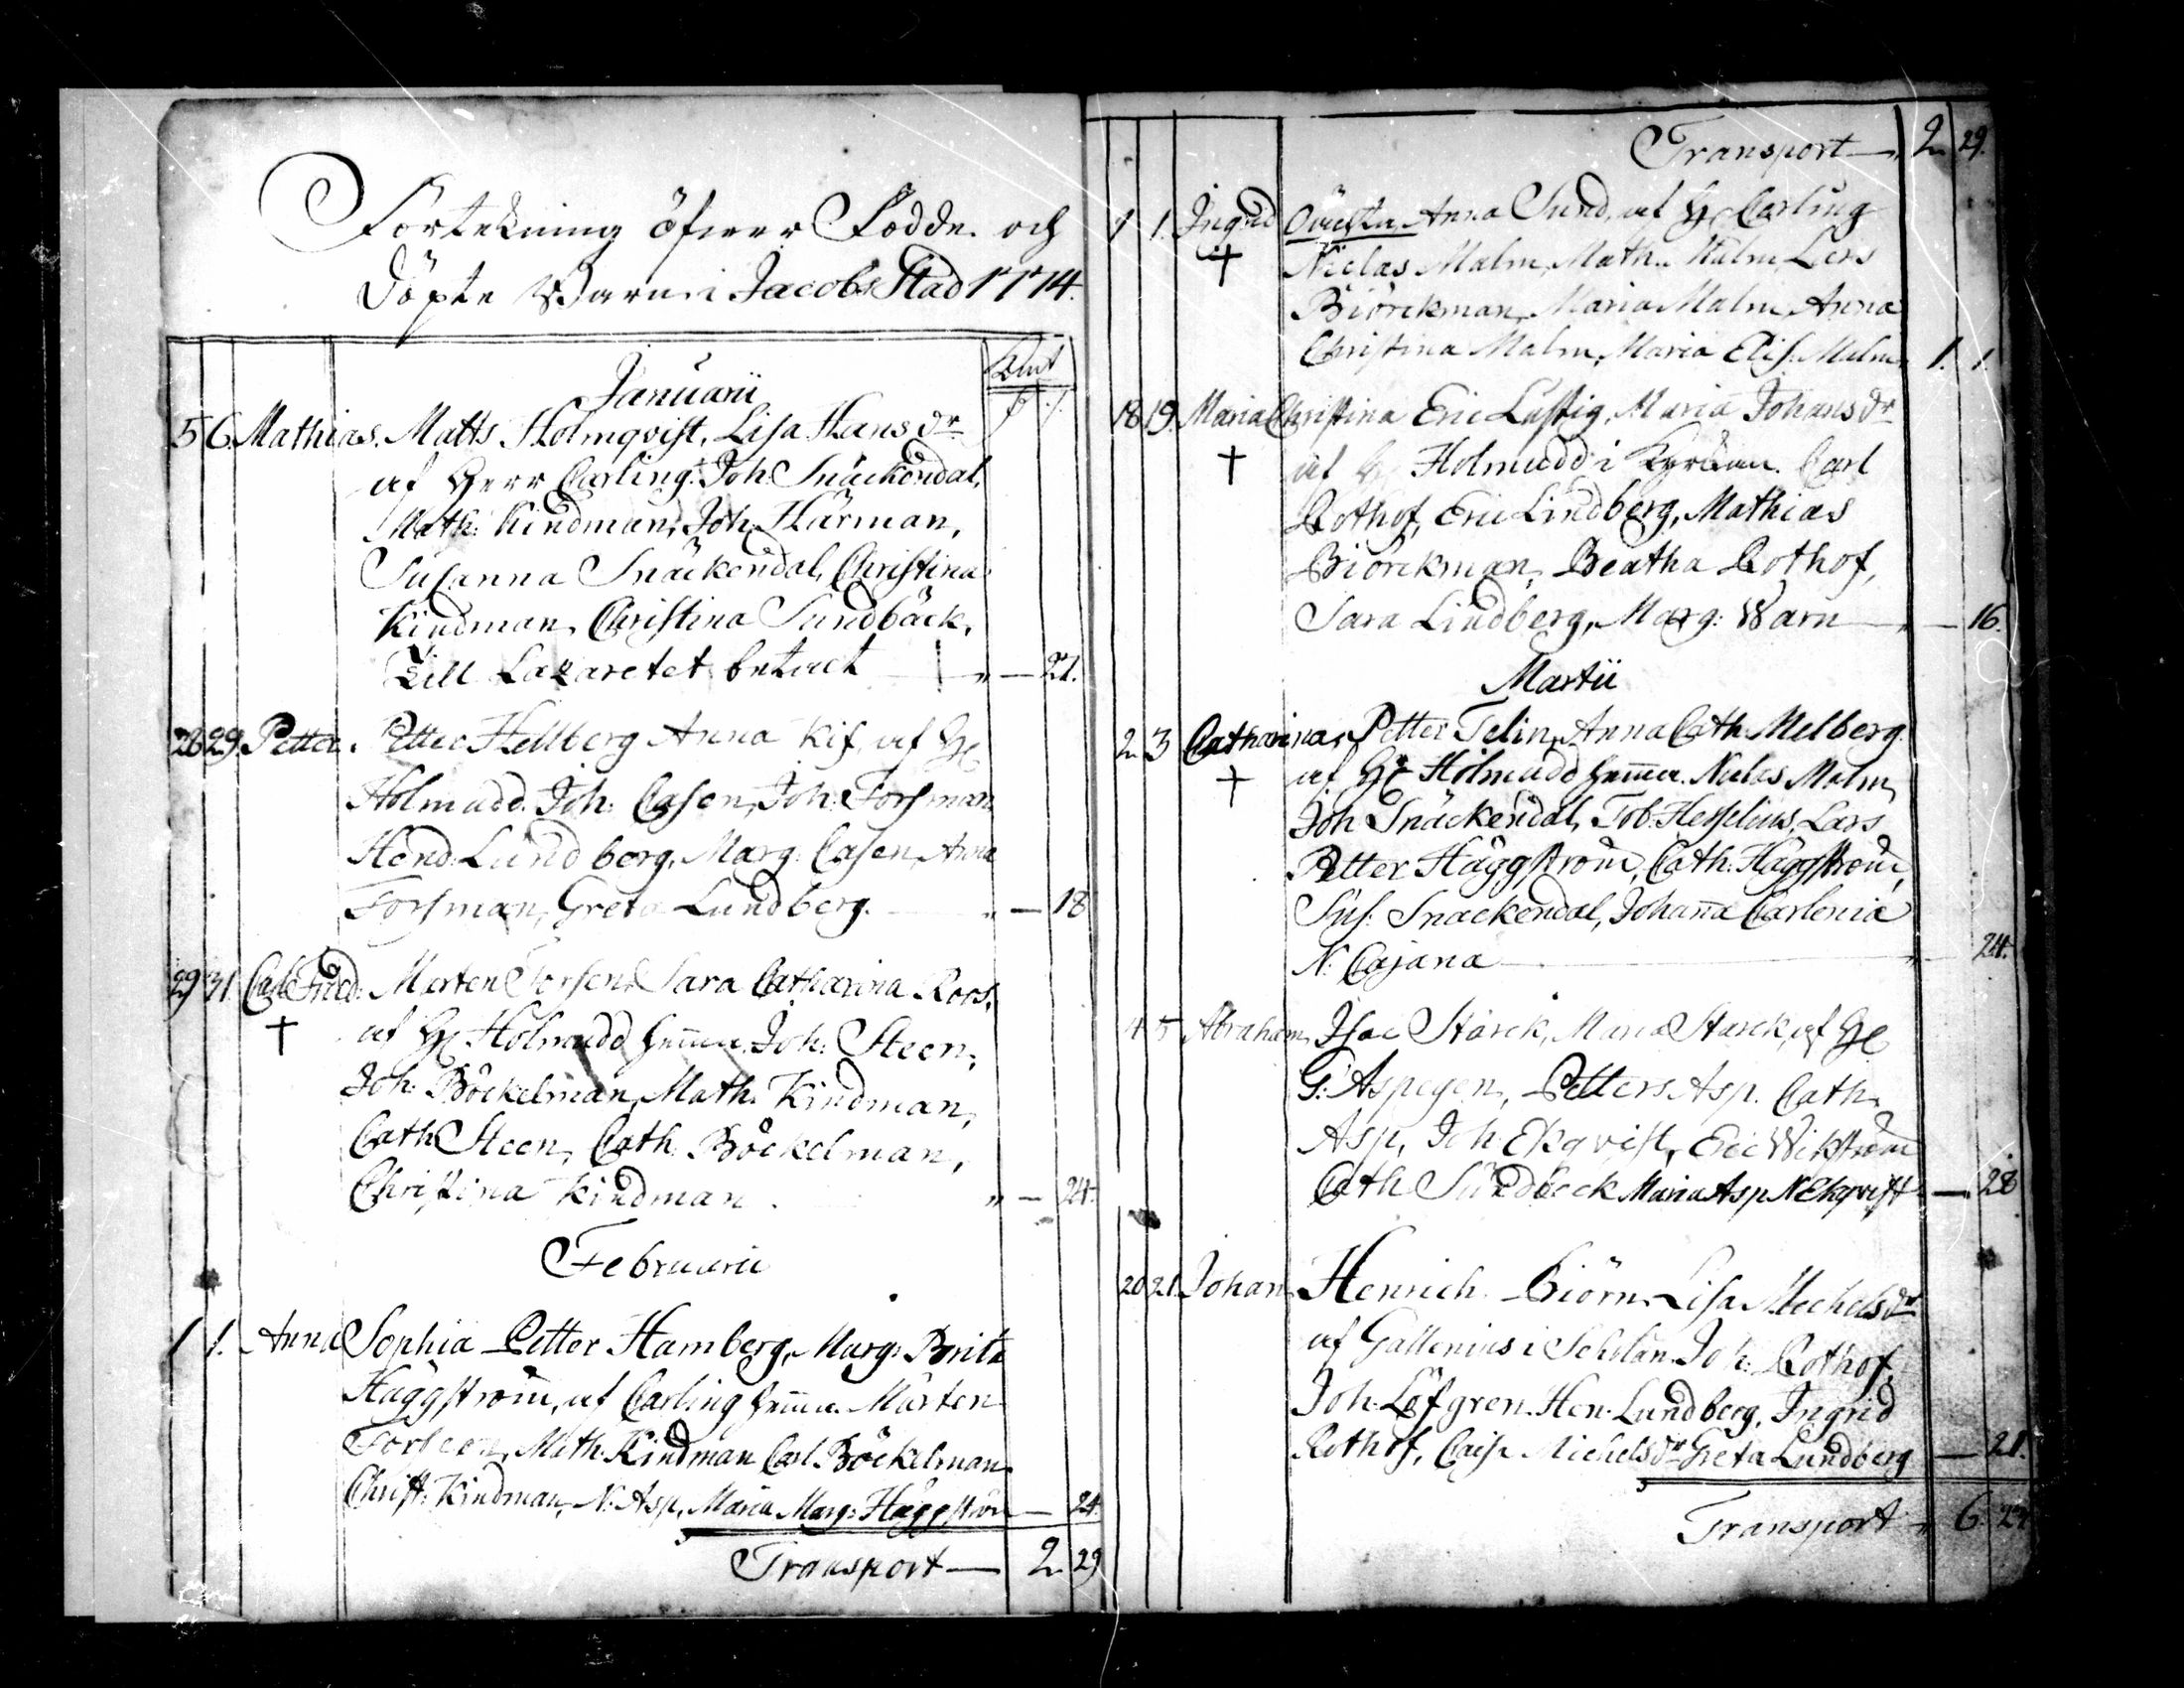 Förtekning öfwer Födde och
Döpte Barn i Jacobs Stad 1774.
Januarii
5 6. Mathias. Matts Holmqvist, Lisa Hans dr
af Herr Carling. Joh: Snäckendal,
Math: Kindman, Joh: Härman,
Susanna Snäckendal, Christina
Kindman, Christina Sundbäck,
Till Lazaretet betalt " — 21.
28 29. Petter. Petter Hellberg Anna Kif, af H
Holmudd. Joh: Casen, Joh: Forsman
Hend: Lundberg, Marg: Casen, Anna
Forsman, Greta Lundberg. " — 18
29 31. Carl Fried: Morten Forsen, Sara Catharina Roos.
† af H Holmudd hemma. Joh: Steen,
Joh: Böckelman, Math: Kindman,
Cath: Steen, Cath: Böckelman,
Christina Kindman. " — 24.
Februarii
1 1. Anna Sophia Petter Hamberg, Marg: Brita
Häggström, af Carling hemma. Mårten
Forseen, Math: Kindman Carl Böckelman
Christ: Kindman, N. Asp, Maria Marg: Häggström — 24.
Transport — 2 29
Transport — 2 29.
1 1. Ingrid Oäckta, Anna Sund, af H Carling
† Niclas Malm, Math: Malm, Lars
Biörckman, Maria Malm, Anna
Christina Malm, Maria Elis: Malm. 1. 1.
18 19. Maria Christina Eric Lustig, Maria Johans dr
† af H Holmudd i Kyrkan. Carl
Rothof, Eric Lindberg, Mathias
Biörckman, Beatha Rothof,
Sara Lindberg, Marg: Warn " — 16.
Martii
2 3 Catharina, Petter Telin, Anna Cath: Melberg.
† af H Holmudd hemma. Niclas Malm,
Joh Snäckendal, Tob: Hesselius, Lars
Petter Häggström, Cath: Häggström,
Sus: Snäckendal, Johanna Carlenia
N. Cajana " — 24.
4 5 Abraham, Isac Starck, Maria Starck, af H
G: Aspegen, Petters Asp. Cath:
Asp, Joh: Ekqvist, Eric Wikström
Cath Sundbeck Maria Asp N Ekqvist — 28
20 21. Johan, Henrich Biörn, Lisa Michels dr
af Gallenius i Scholan. Joh: Rothof,
Joh: Löfgren. Hen: Lundberg, Ingrid
Rothof, Caisa Michels dr Greta Lundberg — 21.
Transport " 6. 27